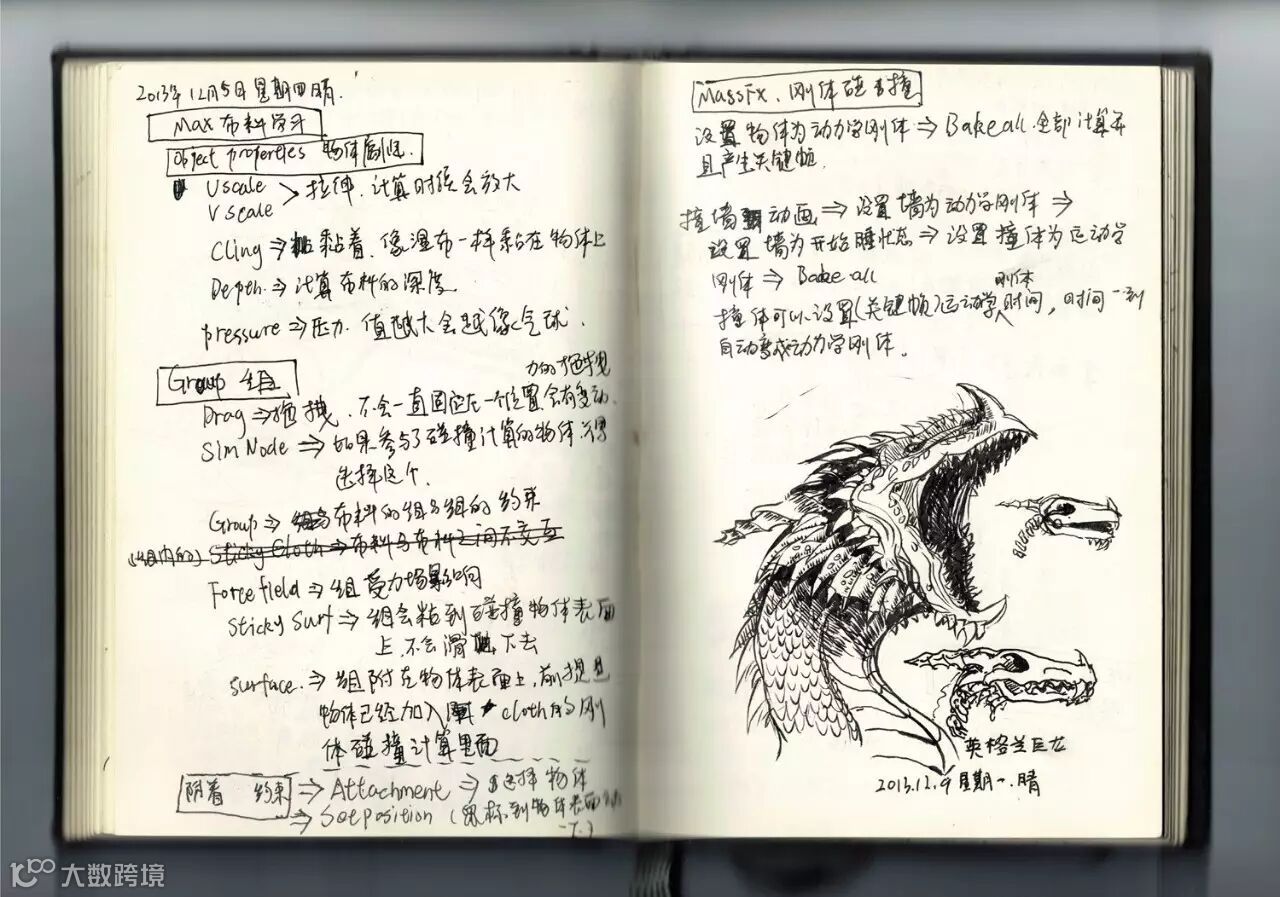 2013年12月5日 星期四 晴.
Max 布料学习
Object properties 物体属性.
Uscale
Vscale > 拉伸.计算时候会放大
Cling ⇒ 黏着.像湿布一样黏在物体上
Depth. ⇒ 计算布料的深度
pressure ⇒ 压力.值越大会越像气球.
Group 组
力的拖拽
Drag ⇒ 拖拽.不会一直固定在一个位置会有变动.
SimNode ⇒ 如果参与了碰撞计算的物体
选择这个.
Group ⇒ 布料的组与组的约束
(组内的) Sticky Cloth ⇒ 布料与布料之间不交互
Forcefield ⇒ 组受力场影响
Sticky Surf ⇒ 组会粘到碰撞物体表面
上.不会滑下去
surface. ⇒ 组附在物体表面上.前提是
物体已经加入 cloth的刚
体碰撞计算里面
附着 约束 ⇒ Attachment ⇒ 选择物体
⇒ Setposition (鼠标到物体表面
MassFx.刚体碰撞
设置物体为动力学刚体 ⇒ Bake all.全部计算并
且产生关键帧.
撞墙动画 ⇒ 设置墙为动力学刚体 ⇒
设置墙为开始睡状态 ⇒ 设置撞体为运动学
刚体 ⇒ Bake all
刚体
撞体可以设置(关键帧)运动学时间,时间一到
自动变成动力学刚体.
英格兰巨龙
2013.12.9 星期一.晴
大数跨境